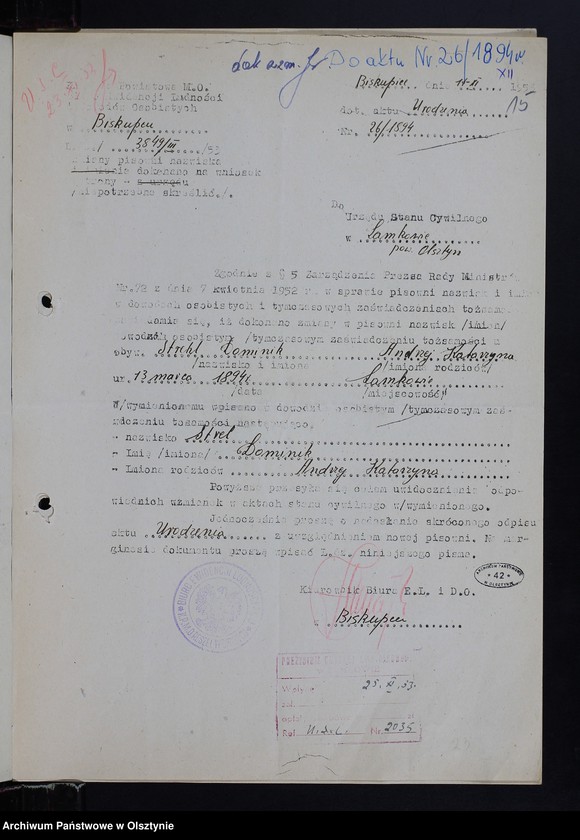 dok zam. Do aktu Nr. 26/1894 r
XII
Powiatowa M.O.
Ludności
Osobistych
w Biskupcu
3849/III /53
zmiany pisowni nazwiska
dokonano na wniosek
strony - z urzędu
/niepotrzebne skreślić./.
Biskupiec dnia 11-XI 195
15
dot. aktu Urodzenia
Nr. 26/1894
Do
Urzędu Stanu Cywilnego
w Lamkowie
pow. Olsztyn
Zgodnie z § 5 Zarządzenia Prezesa Rady Ministrów
Nr.72 z dnia 7 kwietnia 1952 r. w sprawie pisowni nazwisk i imion
w dowodach osobistych i tymczasowych zaświadczeniach tożsamo
się, iż dokonano zmiany w pisowni nazwisk /imion/
dowodzie osobistym /tymczasowym zaświadczeniu tożsamości u
obyw. Strehl Dominik Andrzej Katarzyna
/nazwisko i imiona /imiona rodziców/
ur. 13 marca 1894r Lamkowie
/data /miejscowość/
W/wymienionemu wpisano w dowodzie osobistym /tymczasowym zaś-
wiadczeniu tosamości następująco,
- nazwisko Strel
- Imię /imiona/ Dominik
- Imiona rodziców Andrzej Katarzyna
Powyższe przesyła się celem uwidocznienia odpo-
wiednich wzmianek w aktach stanu cywilnego w/wymienionego.
Jednocześnie proszę o nadesłanie skróconego odpisu
aktu Urodzenia z uwzględnieniem nowej pisowni. Na mar-
ginesie dokumentu proszę wpisać L.dz. niniejszego pisma.
Kierownik Biura E.L. i D.O.
w Biskupcu
ARCHIWUM PAŃSTWOWE
* 42 *
w OLSZTYNIE
25. XI. 53.
Nr. 2035
Archiwum Państwowe w Olsztynie